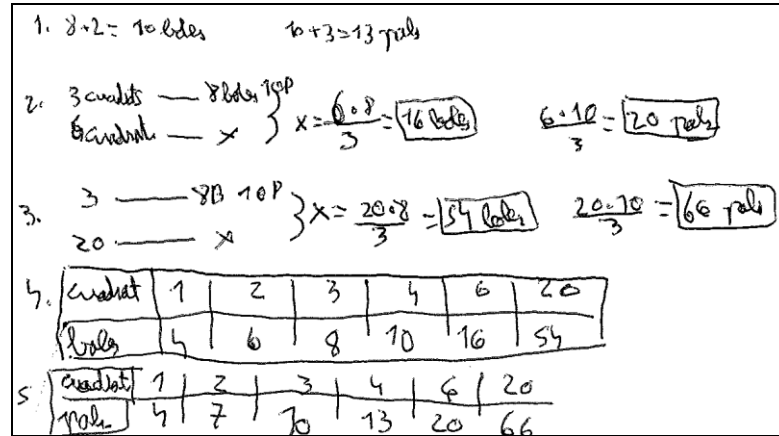 1. 8+2= 10 boles 10+3=13 pals
2. 3 cuadrats — 8 boles 10P
6 cuadrats — x } x = 6·8/3 = 16 boles 6·10/3 = 20 pals
3. 3 — 8B 10P
20 — x } x = 20·8/3 = 54 boles 20·10/3 = 66 pals
4. cuadrat 1 2 3 4 6 20
boles 4 6 8 10 16 54
5 cuadrat 1 2 3 4 6 20
pals 4 7 10 13 20 66